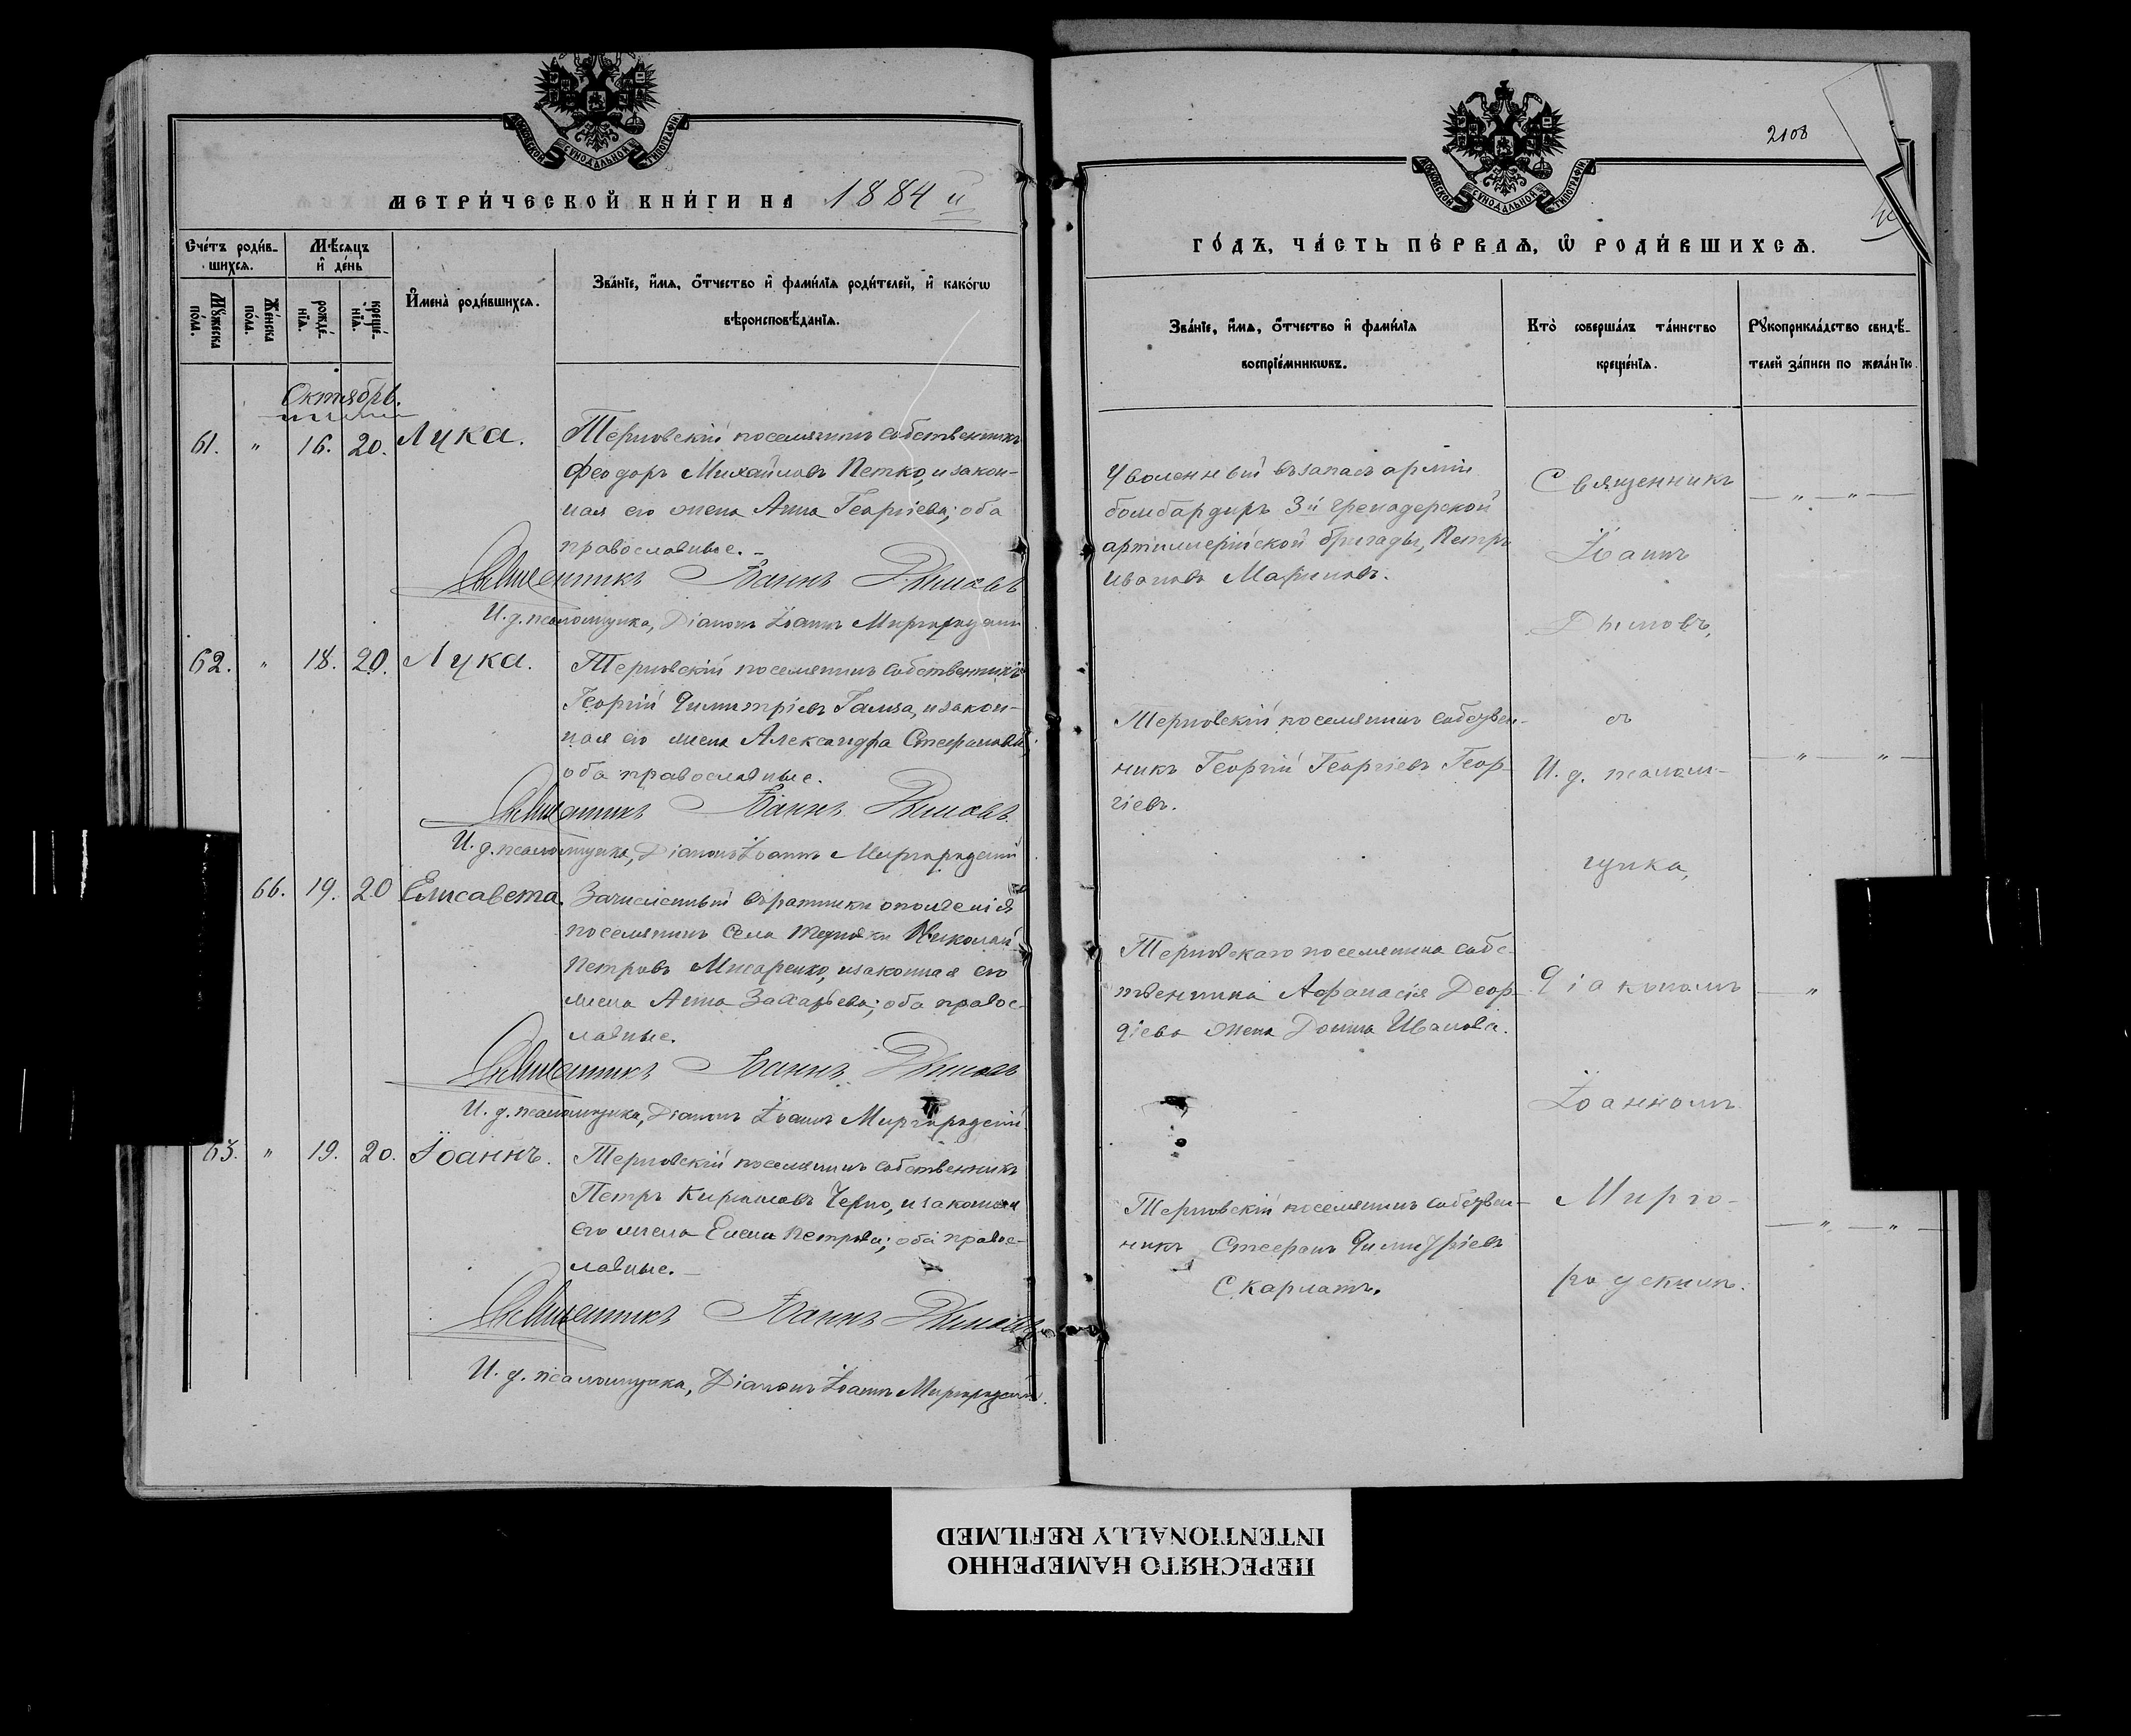 МОСКОВСКОЙ СѴНОДАЛЬНОЙ ТИПОГРАФІИ
МЕТРИ́ЧЕСКОЙ КНИ́ГИ НА 1884 й
Сче́тъ роди́в-
шихсѧ.
Мѣ́сѧцъ
и҆ де́нь
Мꙋ́жеска
по́ла.
Же́нска
по́ла.
рожде́-
нїѧ.
креще́-
нїѧ.
И҆мена̀ роди́вшихсѧ.
Зва́нїе, и҆́мѧ, ѻ҆́тчество и҆ фами́лїѧ роди́телей, и҆ како́гѡ
вѣроисповѣ́данїѧ.
Октябрь.
61. " 16. 20. Лука. Терновскій поселянинъ собственникъ
Феодоръ Михайловъ Петко, и закон-
ная его жена Анна Георгіева; оба
православные.
Священникъ Іоаннъ Дымовъ
И. д. псаломщика, Діаконъ Іоаннъ Миргородскій
62. " 18. 20. Лука. Терновскій поселянинъ собственникъ
Георгій Димитріевъ Гамза, и закон-
ная его жена Александра Стефанова;
оба православные.
Священникъ Іоаннъ Дымовъ.
И. д. псаломщика, Діаконъ Іоаннъ Миргородскій
66. 19. 20 Елисавета. Зачисленный въ ратники ополченія
поселянинъ села Терновки Николай
Петровъ Писаренко, и законная его
жена Анна Захарьева; оба правос-
лавные.
Священникъ Іоаннъ Дымовъ
И. д. псаломщика, Діаконъ Іоаннъ Миргородскій.
63. " 19. 20. Іоаннъ. Терновскій поселянинъ собственникъ
Петръ Кирилловъ Черно, и законная
его жена Елена Петрова; оба правос-
лавные.
Священникъ Іоаннъ Дымовъ
И. д. псаломщика, Діаконъ Іоаннъ Миргородскій.
2108
МОСКОВСКОЙ СѴНОДАЛЬНОЙ ТИПОГРАФІИ
ГО́ДЪ, ЧА́СТЬ ПЕ́РВАѦ, Ѡ҆ РОДИ́ВШИХСѦ.
Зва́нїе, и҆́мѧ, ѻ҆́тчество и҆ фами́лїѧ
воспрїе́мникѡвъ.
Кто̀ соверша́лъ та́инство
креще́нїѧ.
Рꙋкоприкла́дство свидѣ́-
телей за́писи по жела́нїю.
Уволенный въ запасъ арміи
бомбардиръ 3й гренадерской
артиллерійской бригады, Петръ
Ивановъ Мариновъ.
Терновскій поселянинъ собствен-
никъ Георгій Георгіевъ Геор-
гіевъ.
Терновскаго поселянина собс-
твенника Афанасія Деор-
діева жена Домна Иванова.
Терновскій поселянинъ собствен-
никъ Стефанъ Димитріевъ
Скарлатъ.
Священникъ
Іоаннъ
Дымовъ,
съ
И. д. псалом-
щика,
Діакономъ
Іоанномъ
Мирго-
родскимъ.
ПЕРЕСНЯТО НАМЕРЕННО
INTENTIONALLY REFILMED